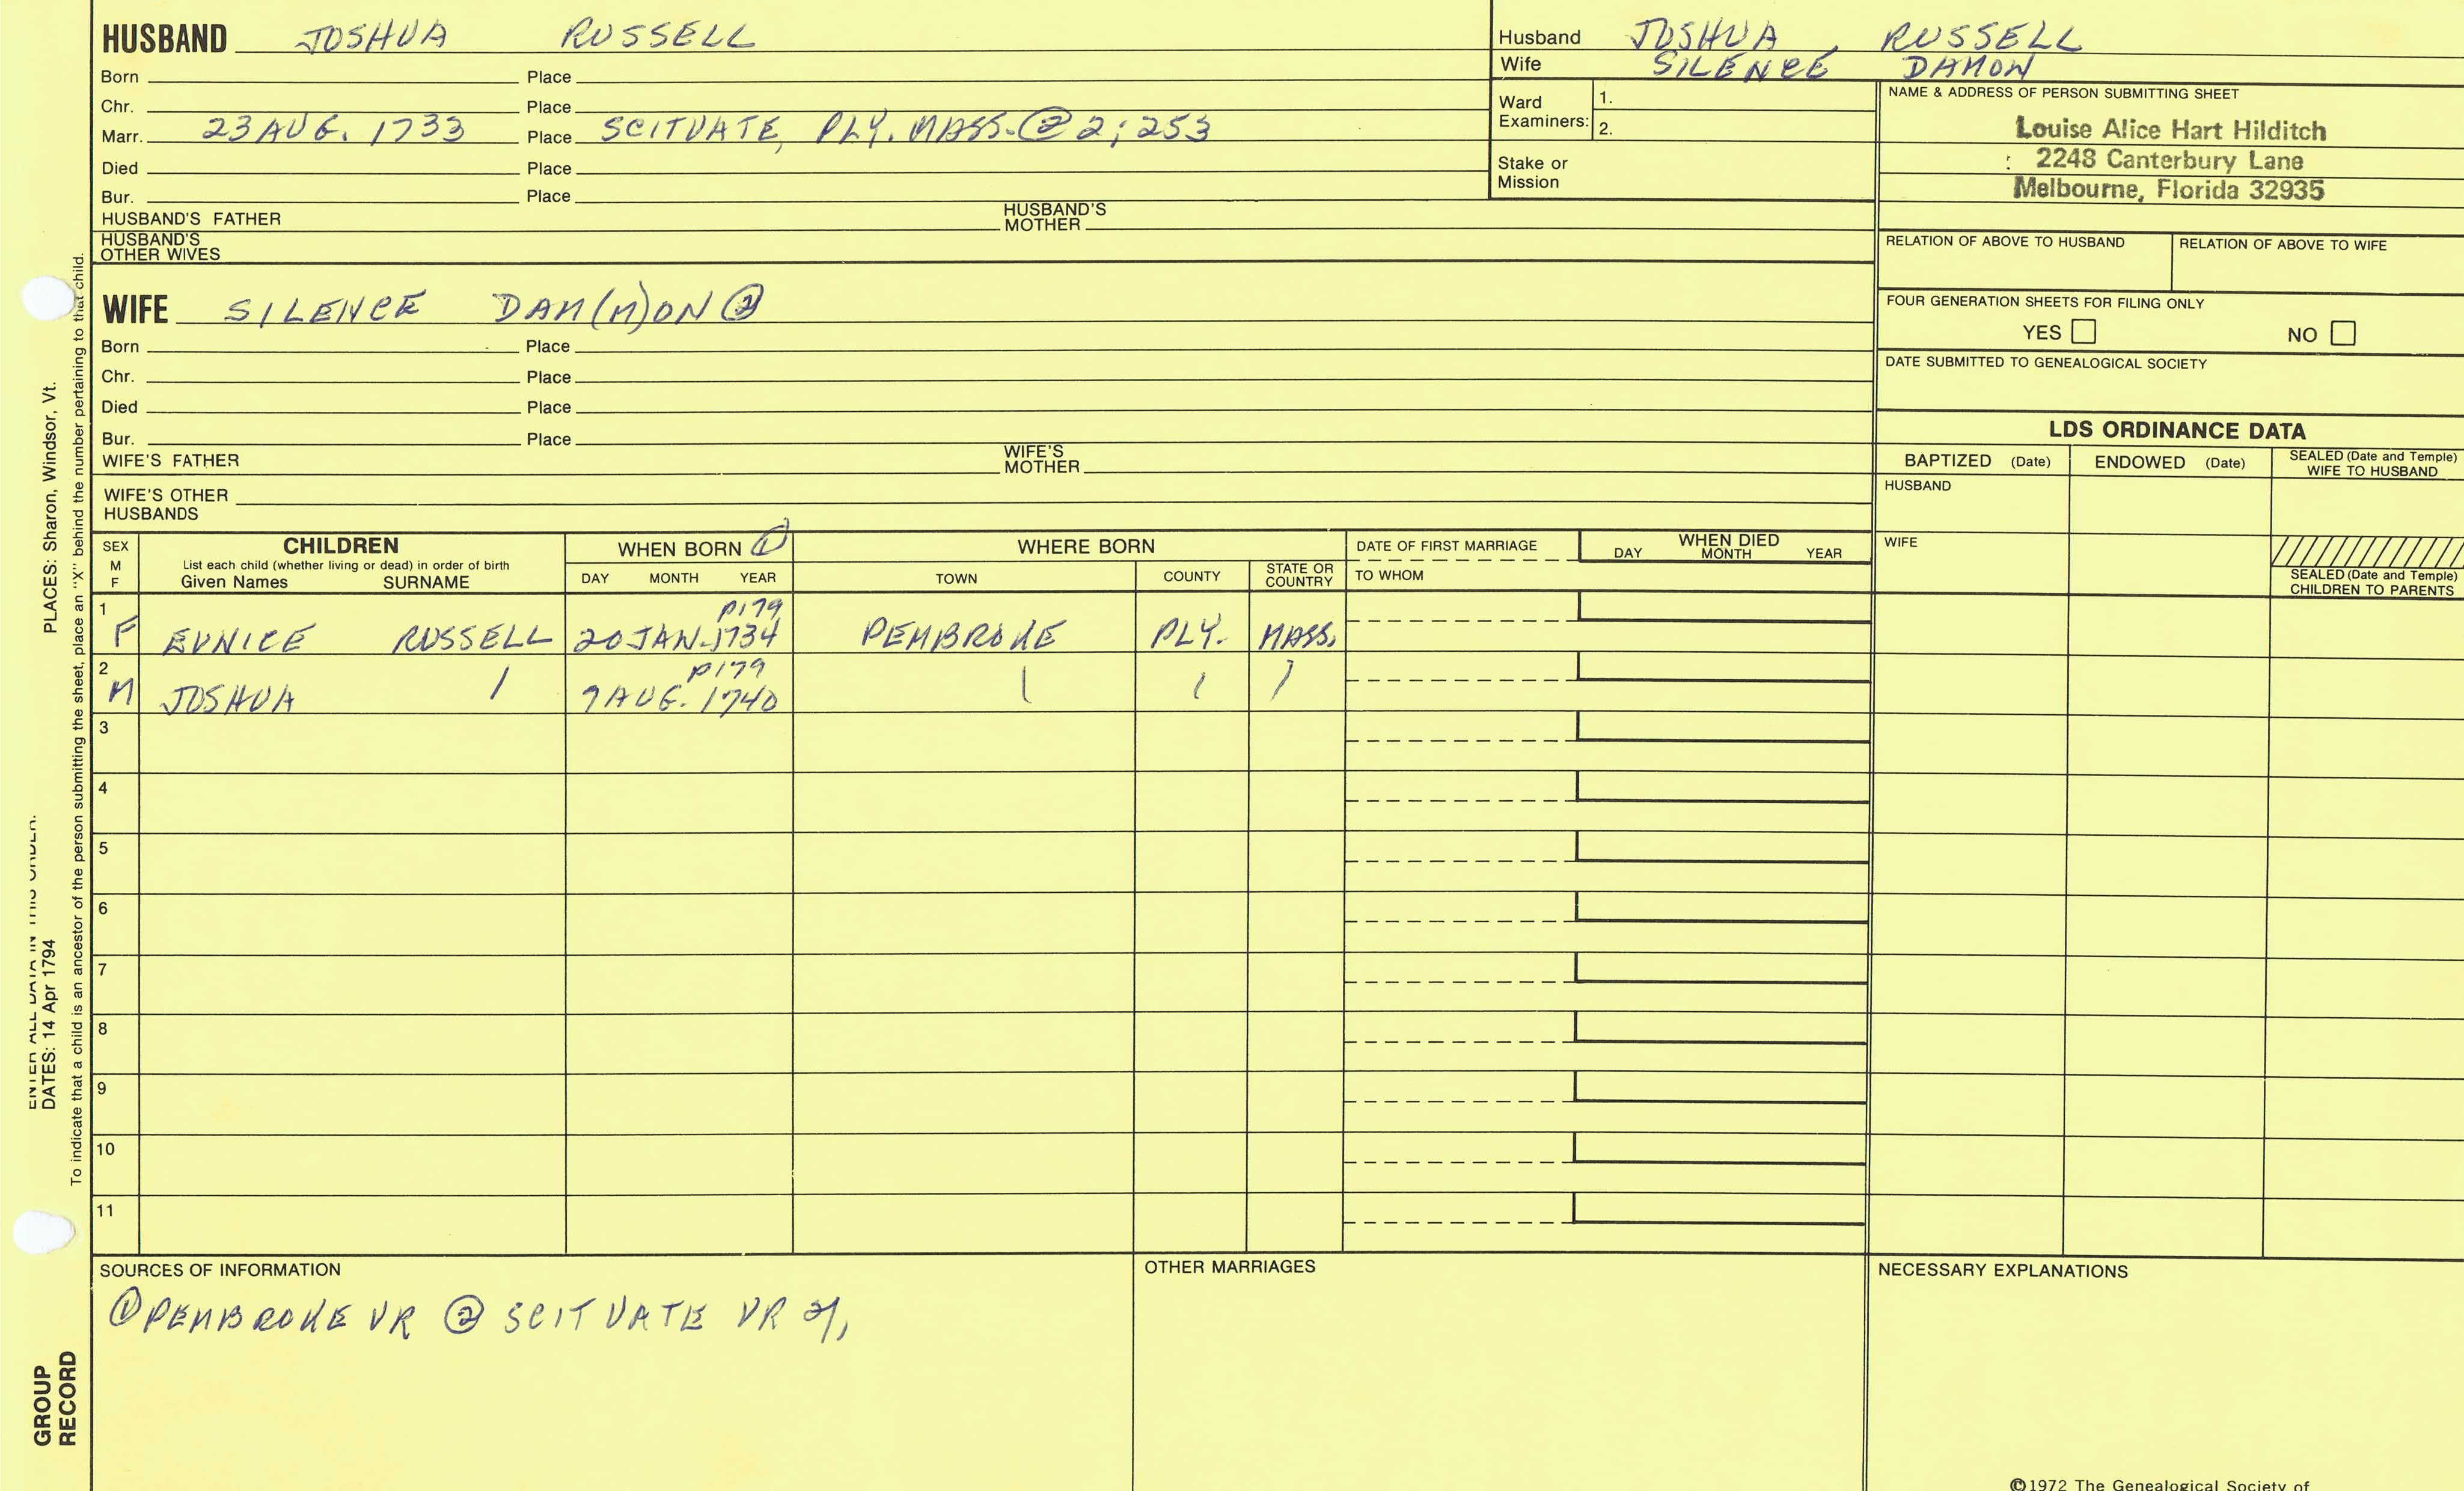 HUSBAND JOSHUA RUSSELL
Born Place
Chr. Place
Marr. 23 AUG. 1733 Place SCITUATE, PLY. MASS. ② 2; 253
Died Place
Bur. Place
HUSBAND'S FATHER HUSBAND'S MOTHER
HUSBAND'S OTHER WIVES
Husband JOSHUA RUSSELL
Wife SILENCE DAMON
Ward Examiners: 1.
2.
Stake or Mission
NAME & ADDRESS OF PERSON SUBMITTING SHEET
Louise Alice Hart Hilditch
2248 Canterbury Lane
Melbourne, Florida 32935
RELATION OF ABOVE TO HUSBAND RELATION OF ABOVE TO WIFE
FOUR GENERATION SHEETS FOR FILING ONLY
YES NO
DATE SUBMITTED TO GENEALOGICAL SOCIETY
WIFE SILENCE DAM(M)ON ②
Born Place
Chr. Place
Died Place
Bur. Place
WIFE'S FATHER WIFE'S MOTHER
WIFE'S OTHER HUSBANDS
LDS ORDINANCE DATA
BAPTIZED (Date) ENDOWED (Date) SEALED (Date and Temple) WIFE TO HUSBAND
HUSBAND
WIFE
SEALED (Date and Temple) CHILDREN TO PARENTS
SEX M F
CHILDREN
List each child (whether living or dead) in order of birth
Given Names SURNAME
WHEN BORN ①
DAY MONTH YEAR
WHERE BORN
TOWN COUNTY STATE OR COUNTRY
DATE OF FIRST MARRIAGE
TO WHOM
WHEN DIED
DAY MONTH YEAR
1 P179
F EUNICE RUSSELL 20 JAN. 1734 PEMBROKE PLY. MASS.
2 P179
M JOSHUA 9 AUG. 1740
3
4
5
6
7
8
9
10
11
SOURCES OF INFORMATION
① PEMBROKE VR ② SCITUATE VR
OTHER MARRIAGES
NECESSARY EXPLANATIONS
©1972 The Genealogical Society of
ENTER ALL DATA IN THIS ORDER:
DATES: 14 Apr 1794 PLACES: Sharon, Windsor, Vt.
To indicate that a child is an ancestor of the person submitting the sheet, place an "X" behind the number pertaining to that child.
GROUP
RECORD